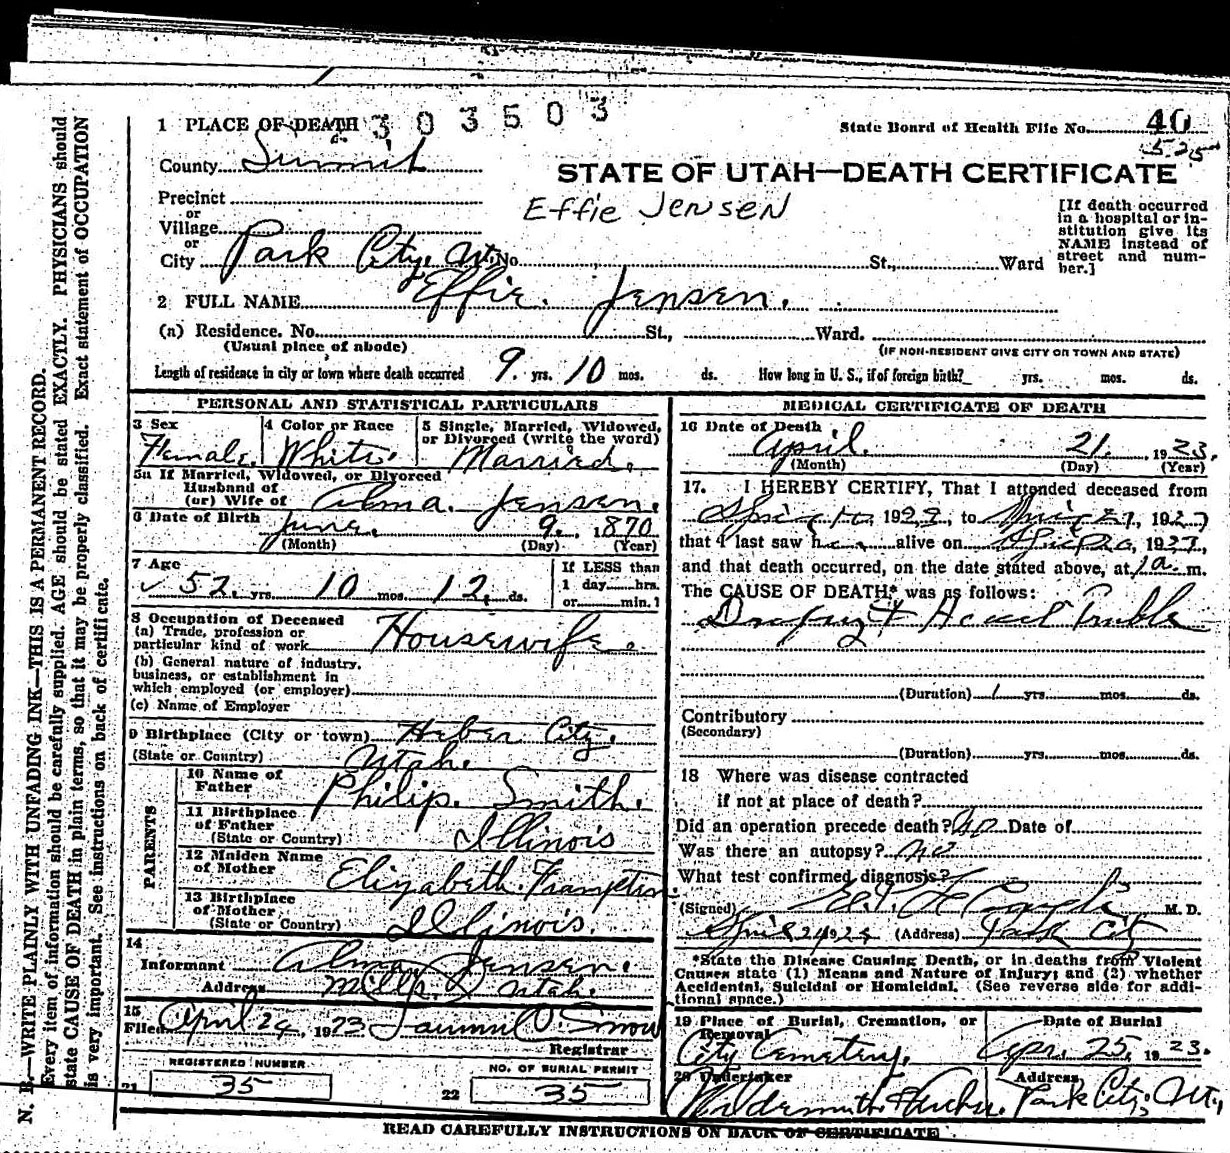 303503
1 PLACE OF DEATH
State Board of Health File No. 40
525
County Summit
STATE OF UTAH—DEATH CERTIFICATE
Precinct
or
Village
Effie Jensen
[If death occurred in a hospital or institution give its NAME instead of street and number.]
or
City Park City, Ut. No. St., Ward
2 FULL NAME Effie. Jensen.
(a) Residence. No. St., Ward.
(Usual place of abode)
(IF NON-RESIDENT GIVE CITY OR TOWN AND STATE)
Length of residence in city or town where death occurred 9. yrs. 10 mos. ds. How long in U. S., if of foreign birth? yrs. mos. ds.
PERSONAL AND STATISTICAL PARTICULARS
3 Sex
Female.
4 Color or Race
White.
5 Single, Married, Widowed, or Divorced (write the word)
Married.
5a If Married, Widowed, or Divorced
Husband of
(or) Wife of Alma. Jensen.
6 Date of Birth June. 9., 1870
(Month) (Day) (Year)
7 Age
52. yrs. 10 mos. 12. ds.
If LESS than
1 day hrs.
or min.?
8 Occupation of Deceased
(a) Trade, profession or
particular kind of work Housewife.
(b) General nature of industry,
business, or establishment in
which employed (or employer)
(c) Name of Employer
9 Birthplace (City or town) Heber City.
(State or Country) Utah.
PARENTS
10 Name of
Father Philip. Smith.
11 Birthplace
of Father
(State or Country) Illinois
12 Maiden Name
of Mother Elizabeth. Frampton.
13 Birthplace
of Mother
(State or Country) Illinois.
14
Informant Alma Jensen.
Address Utah.
15
Filed April 24, 1923 Snow
Registrar
REGISTERED NUMBER
21 35
NO. OF BURIAL PERMIT
22 35
MEDICAL CERTIFICATE OF DEATH
16 Date of Death
April. 21., 1923.
(Month) (Day) (Year)
17. I HEREBY CERTIFY, That I attended deceased from
that I last saw her alive on
and that death occurred, on the date stated above, at 1 a. m.
The CAUSE OF DEATH* was as follows:
(Duration) 1 yrs. mos. ds.
Contributory
(Secondary)
(Duration) yrs. mos. ds.
18 Where was disease contracted
if not at place of death?
Did an operation precede death? no Date of
Was there an autopsy? no
What test confirmed diagnosis?
(Signed) M. D.
(Address) Park City
*State the Disease Causing Death, or in deaths from Violent
Causes state (1) Means and Nature of Injury; and (2) whether
Accidental, Suicidal or Homicidal. (See reverse side for additional space.)
19 Place of Burial, Cremation, or
Removal
City Cemetery.
Date of Burial
Apr. 25, 1923.
20 Undertaker
Address
Park City, Ut,
READ CAREFULLY INSTRUCTIONS ON BACK OF CERTIFICATE
N. B.—WRITE PLAINLY WITH UNFADING INK—THIS IS A PERMANENT RECORD.
Every item of information should be carefully supplied. AGE should be stated EXACTLY. PHYSICIANS should
state CAUSE OF DEATH in plain terms, so that it may be properly classified. Exact statement of OCCUPATION
is very important. See instructions on back of certificate.